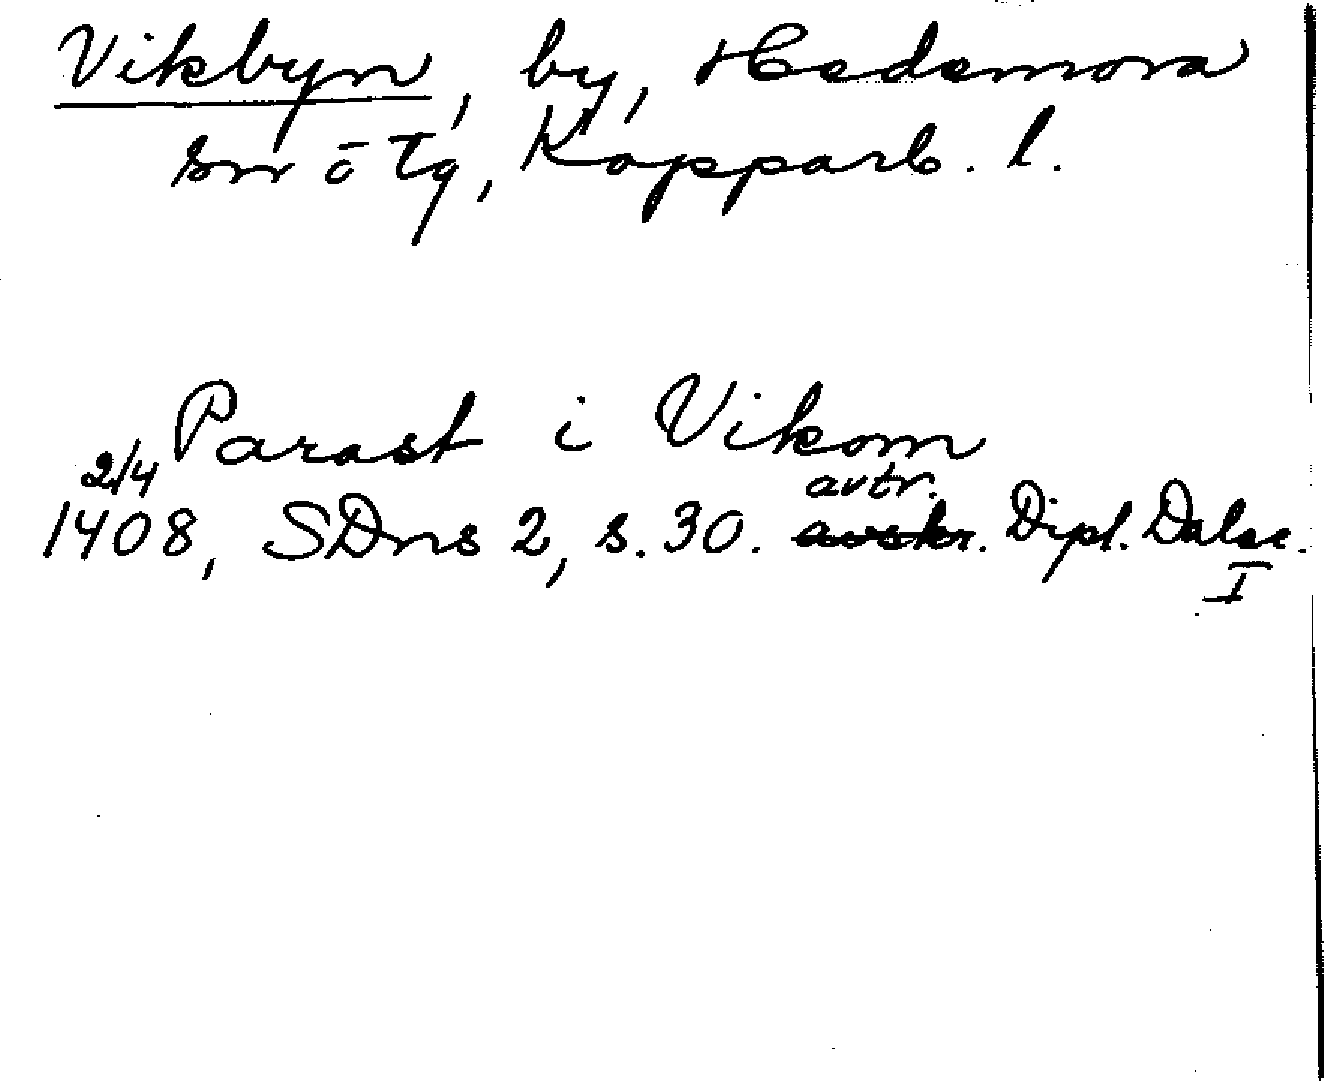 Vikbyn, by, Hedemora
sn o Tg, Kopparb. l.
Parast i Vikom
2/4 avtr.
1408, SDns 2, s. 30. avskr. Dipl. Dalec.
I